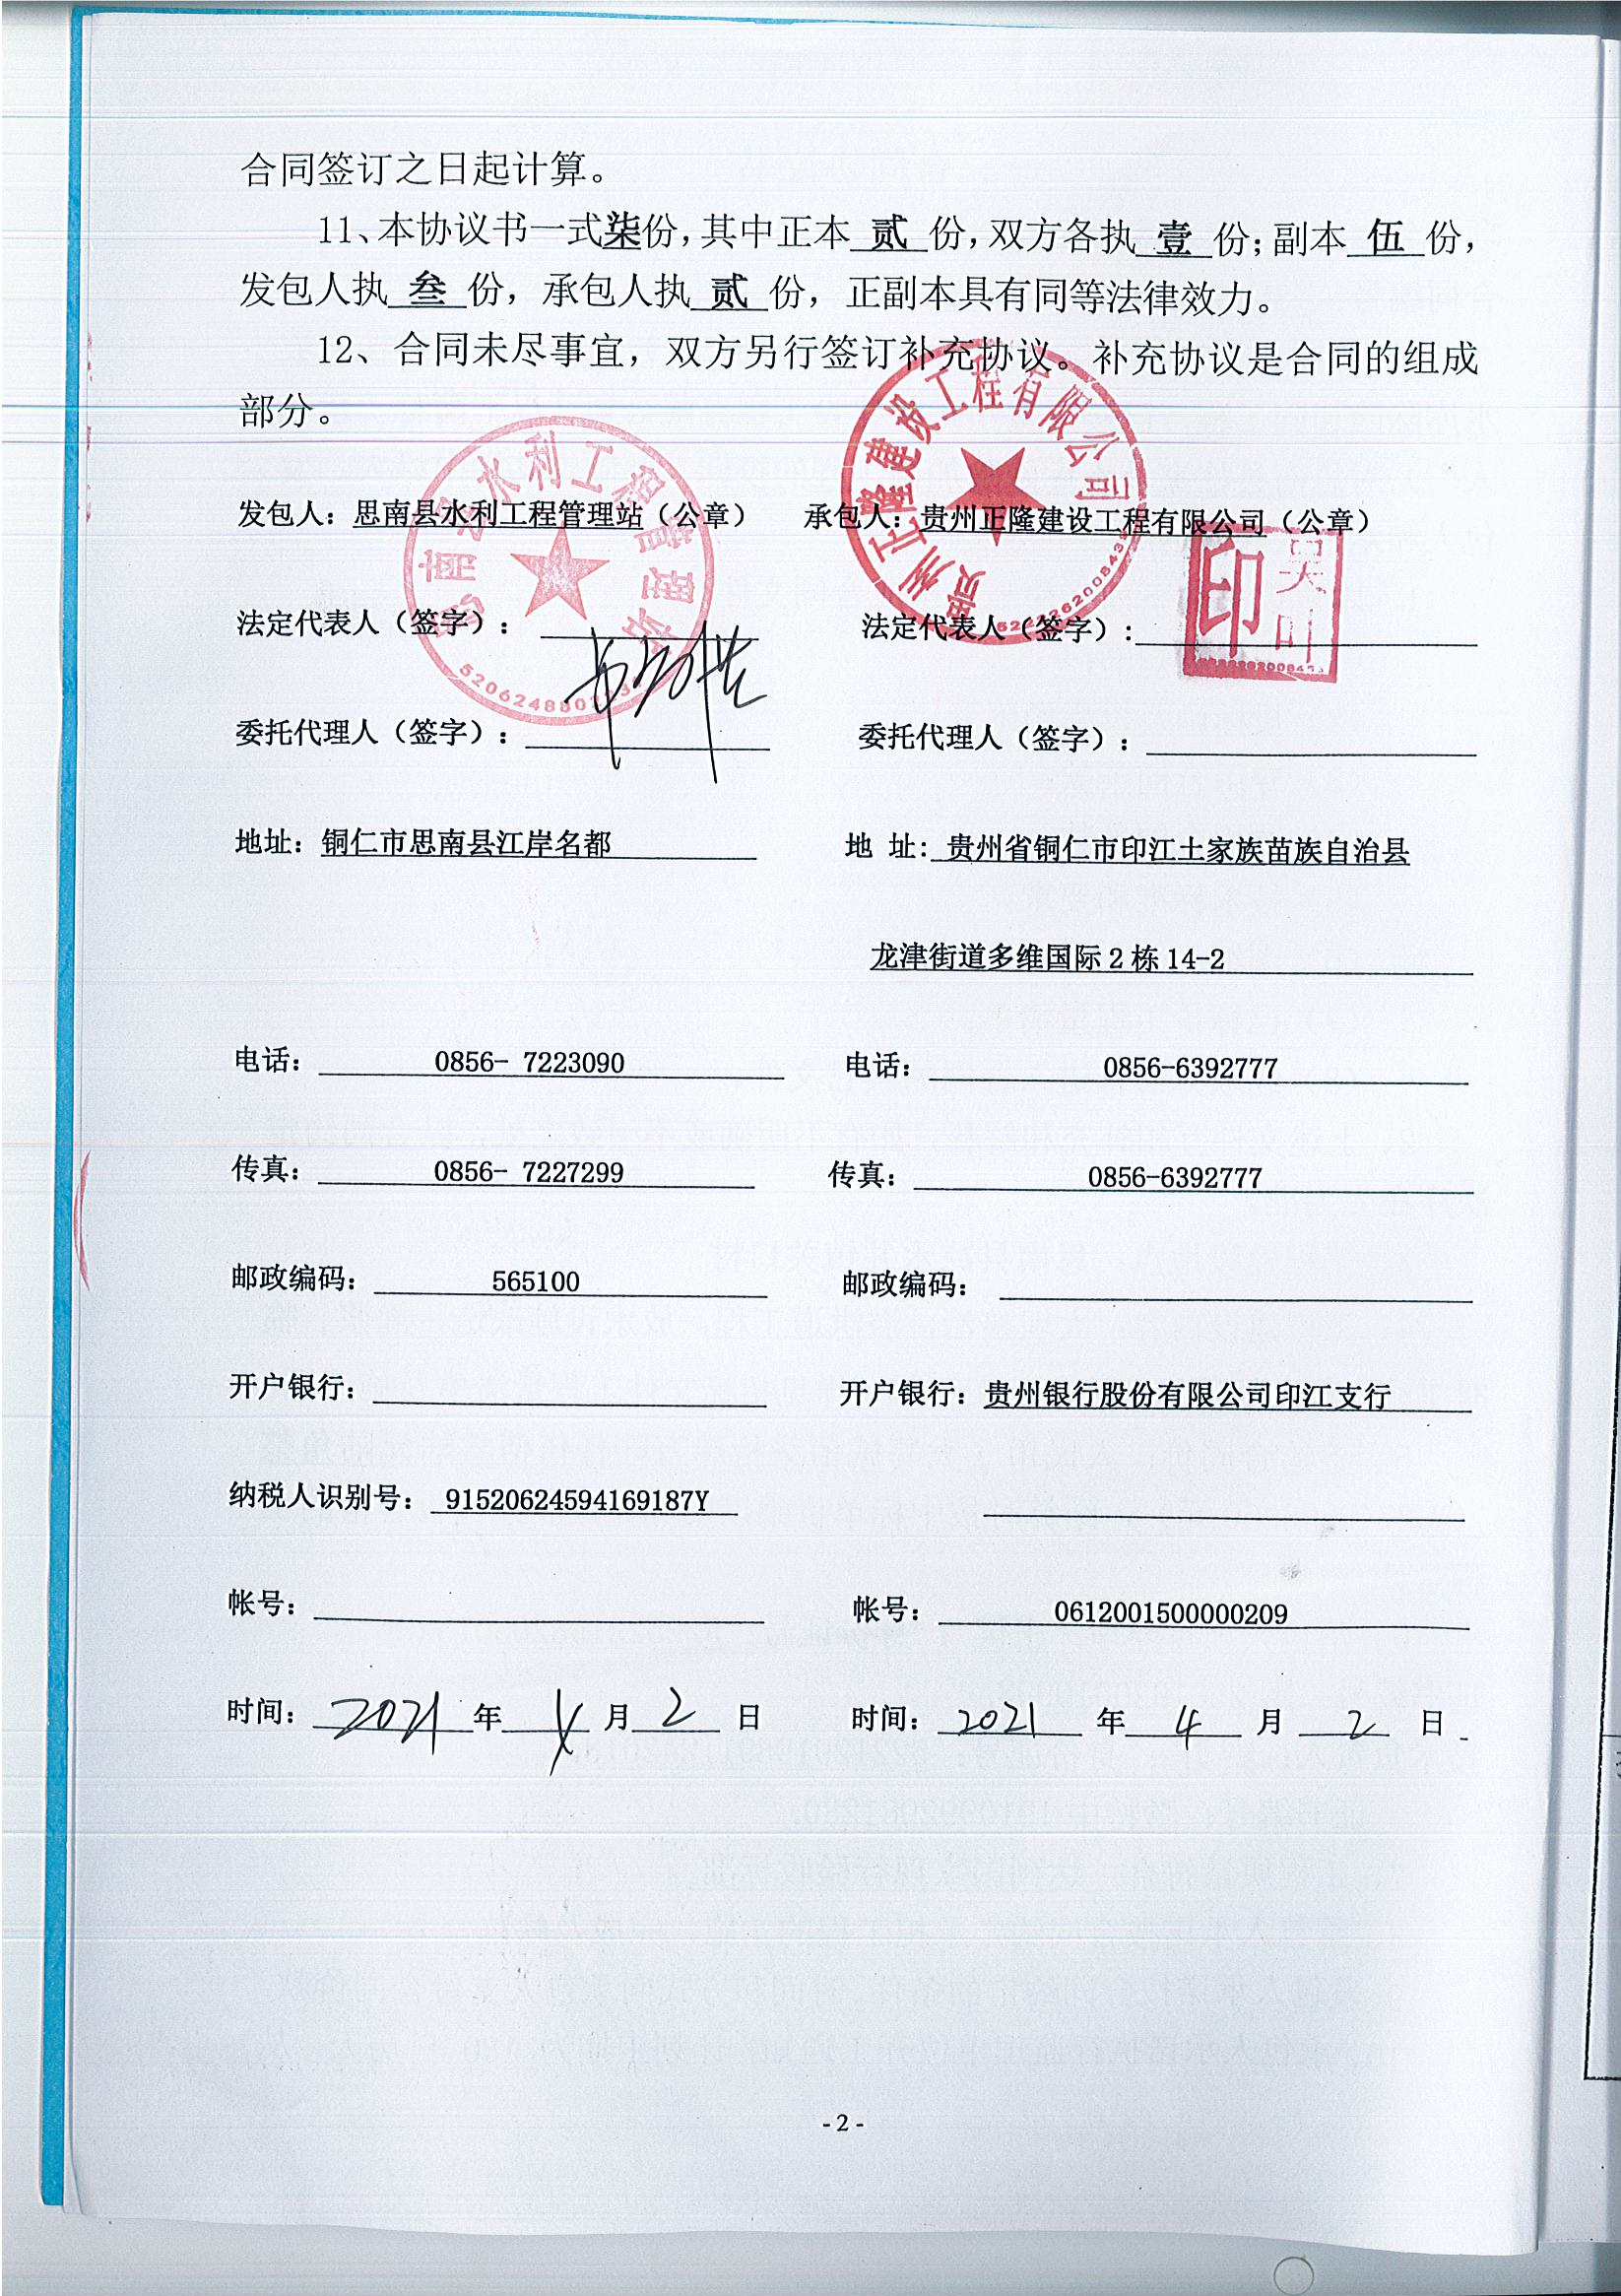 合同签订之日起计算。
11、本协议书一式柒份,其中正本 贰 份,双方各执 壹 份;副本 伍 份,
发包人执 叁 份，承包人执 贰 份，正副本具有同等法律效力。
12、合同未尽事宜，双方另行签订补充协议。补充协议是合同的组成
部分。
发包人：思南县水利工程管理站（公章） 承包人：贵州正隆建设工程有限公司（公章）
思南县水利工程管理站
贵州正隆建设工程有限公司
印 吴叶
法定代表人（签字）： 法定代表人（签字）:
委托代理人（签字）： 委托代理人（签字）：
地址：铜仁市思南县江岸名都 地 址: 贵州省铜仁市印江土家族苗族自治县
龙津街道多维国际 2 栋 14-2
电话： 0856- 7223090 电话： 0856-6392777
传真： 0856- 7227299 传真： 0856-6392777
邮政编码： 565100 邮政编码：
开户银行： 开户银行：贵州银行股份有限公司印江支行
纳税人识别号： 91520624594169187Y
帐号： 帐号： 0612001500000209
时间： 2021 年 4 月 2 日 时间： 2021 年 4 月 2 日
- 2 -